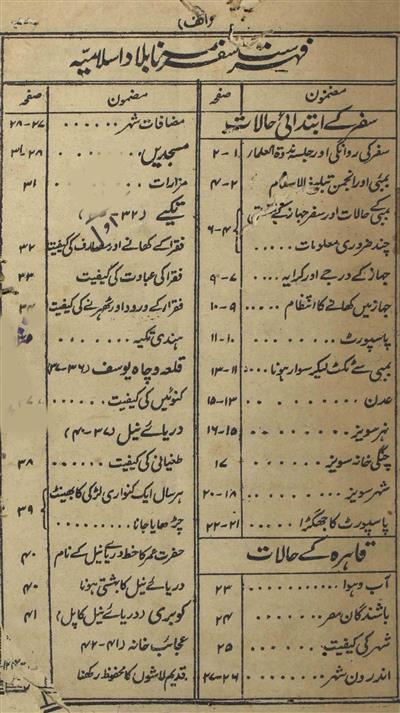 (الف)
فہرست سفرنامہ بلاد اسلامیہ
مضمون صفحہ
سفر کے ابتدائی حالات
سفر کی روانگی اور جلسہ ندوۃ العلماء ۱-۲
بمبئی اور انجمن تبلیغ الاسلام ۲-۴
بمبئی کے حالات اور سفر جہاز کے متعلق
چند ضروری معلومات ..... ۴-۶
جہاز کے درجے اور کرایہ ... ۷-۹
جہاز میں کھانے کا انتظام ۹-۱۰
پاسپورٹ ....... ۱۰-۱۱
بمبئی سے ٹکٹ لیکر سوار ہونا ... ۱۱-۱۳
عدن ......... ۱۳-۱۵
نہر سویز ........ ۱۵-۱۶
چنگی خانہ سویز ...... ۱۷
شہر سویز ........ ۱۸-۲۰
پاسپورٹ کا جھگڑا .... ۲۱-۲۲
قاہرہ کے حالات
آب و ہوا ......... ۲۳
باشندگان مصر ....... ۲۴
شہر کی کیفیت ...... ۲۵
اندرون شہر ...... ۲۶-۲۷
مضمون صفحہ
مضافات شہر ...... ۲۷-۲۸
مسجدیں ....... ۲۸-۳۱
مزارات ...... ۳۱
تکیے (۳۲
فقرا کے کھانے اور مصارف کی کیفیت ۳۲
فقرا کی عبادت کی کیفیت ۳۳
فقرا کے ورود اور ٹھہرنے کی کیفیت ۳۴
ہندی تکیہ .....
قلعہ و چاہ یوسف (۳۶-۳۷)
کنوئیں کی کیفیت ......
دریائے نیل (۳۷-۴۰)
طغیانی کی کیفیت .... ۳۸
ہر سال ایک کنواری لڑکی کا بھینٹ
چڑھایا جانا .... ۳۹
حضرت عمر کا خط دریائے نیل کے نام ۴۰
دریائے نیل کا بہشتی ہونا ۴۰
کوبری (دریائے نیل کا پل) ۴۱
عجائب خانہ (۴۱-۴۲
قدیم لاشوں کا محفوظ رکھنا